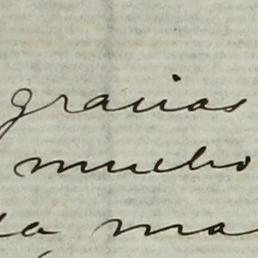 gracias
mucho
ma